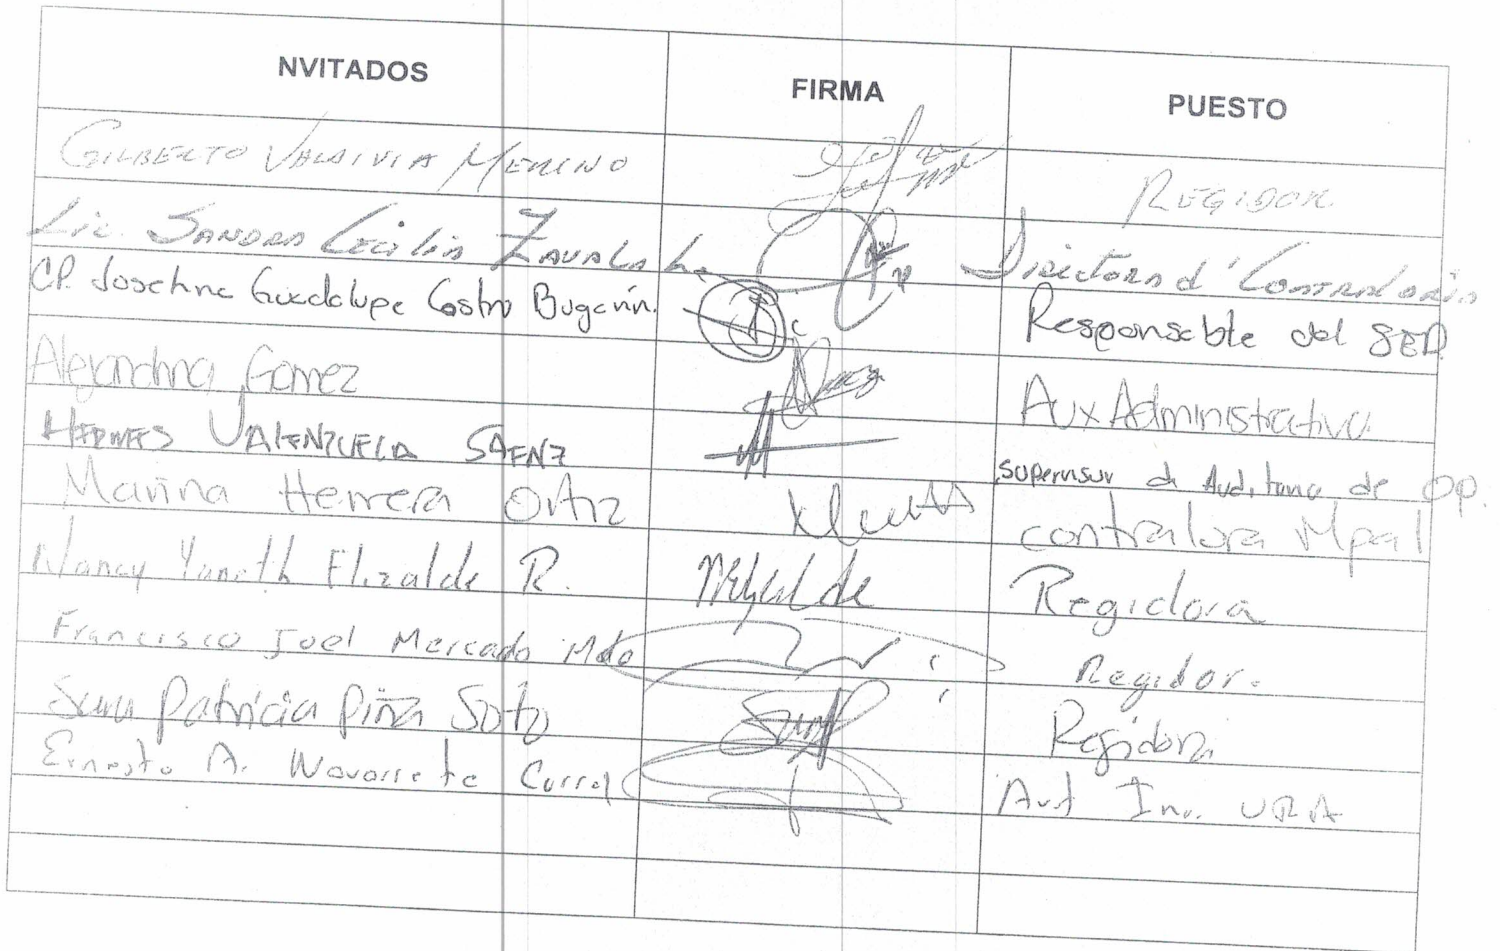 NVITADOS FIRMA PUESTO
GILBERTO VALDIVIA MERINO REGIDOR
Lic. SANDRA Cecilia ZAVALA L. Directora d' Contraloria
CP. Josefina Guadalupe Castro Bugarin. Responsable del SED
Alejandrina Gomez Aux Administrativo
HERMES VALENZUELA SAENZ supervisor de Auditoria de Op.
Marina Herrera Ortiz contralora Mpal
Nancy Yaneth Elizalde R. Regidora
Francisco Joel Mercado Mdo Regidor.
Patricia Piña Soto Regidora
Ernesto A. Navarrete Corral Aut Inv. URA